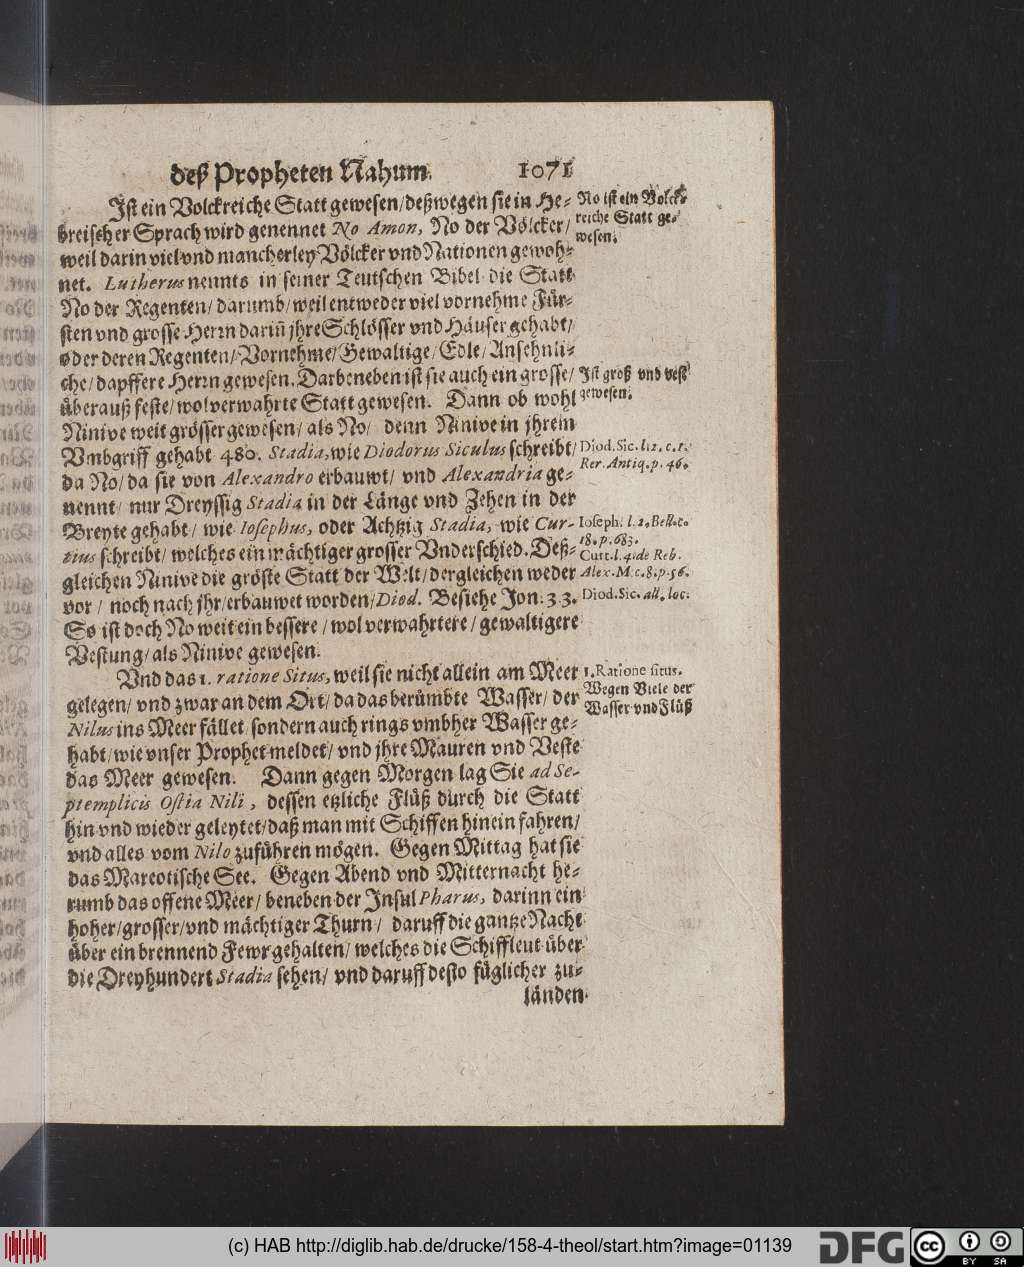 deß Propheten Nahum. 1071
Ist ein Volckreiche Statt gewesen/deßwegen sie in He-
breischer Sprach wird genennet No Amon, No der Völcker/
weil darin viel vnd mancherley Völcker vnd Nationen gewoh-
net. Lutherus nennts in seiner Teutschen Bibel die Statt
No der Regenten/ darumb/ weil entweder viel vornehme Für-
sten vnd grosse Herrn dariñ jhre Schlösser vnd Häuser gehabt/
oder deren Regenten/ Vornehme/ Gewaltige/ Edle/ Ansehnli-
che/ dapffere Herrn gewesen. Darbeneben ist sie auch ein grosse/
überauß feste/ wolverwahrte Statt gewesen. Dann ob wohl
Ninive weit grösser gewesen/ als No/ denn Ninive in jhrem
Vmbgriff gehabt 480. Stadia, wie Diodorus Siculus schreibt/
da No/ da sie von Alexandro erbauwt/ vnd Alexandria ge-
nennt/ nur Dreyssig Stadia in der Länge vnd Zehen in der
Breyte gehabt/ wie Iosephus, oder Achtzig Stadia, wie Cur-
tius schreibt/ welches ein mächtiger grosser Vnderschied. Deß-
gleichen Ninive die gröste Statt der Welt/ dergleichen weder
vor / noch nach jhr/ erbauwet worden/ Diod. Besiehe Jon. 3. 3.
So ist doch No weit ein bessere / wolverwahrtere / gewaltigere
Vestung/ als Ninive gewesen.
Vnd das 1. ratione Situs, weil sie nicht allein am Meer
gelegen/ vnd zwar an dem Ort/ da das berümbte Wasser/ der
Nilus ins Meer fället/ sondern auch rings vmbher Wasser ge-
habt/ wie vnser Prophet meldet/ vnd jhre Mauren vnd Veste
das Meer gewesen. Dann gegen Morgen lag Sie ad Se-
ptemplicis Ostia Nili, dessen etzliche Flüß durch die Statt
hin vnd wieder geleytet/ daß man mit Schiffen hinein fahren/
vnd alles vom Nilo zuführen mögen. Gegen Mittag hat sie
das Mareotische See. Gegen Abend vnd Mitternacht he-
rumb das offene Meer/ beneben der Insul Pharus, darinn ein
hoher/ grosser/ vnd mächtiger Thurn/ daruff die gantze Nacht
über ein brennend Fewr gehalten/ welches die Schiffleut über
die Dreyhundert Stadia sehen/ vnd daruff desto füglicher zu-
länden
No ist ein Volck-
reiche Statt ge-
wesen.
Ist groß vnd vest
gewesen.
Diod. Sic. l. 2. c. 1.
Rer. Antiq. p. 46.
Ioseph. l. 2. Bell. c.
18. p. 683.
Curt. l. 4. de Reb.
Alex. M. c. 8. p. 56.
Diod. Sic. all. loc.
1. Ratione situs.
Wegen Viele der
Wasser vnd Flüß
(c) HAB http://diglib.hab.de/drucke/158-4-theol/start.htm?image=01139
DFG
cc
BY SA